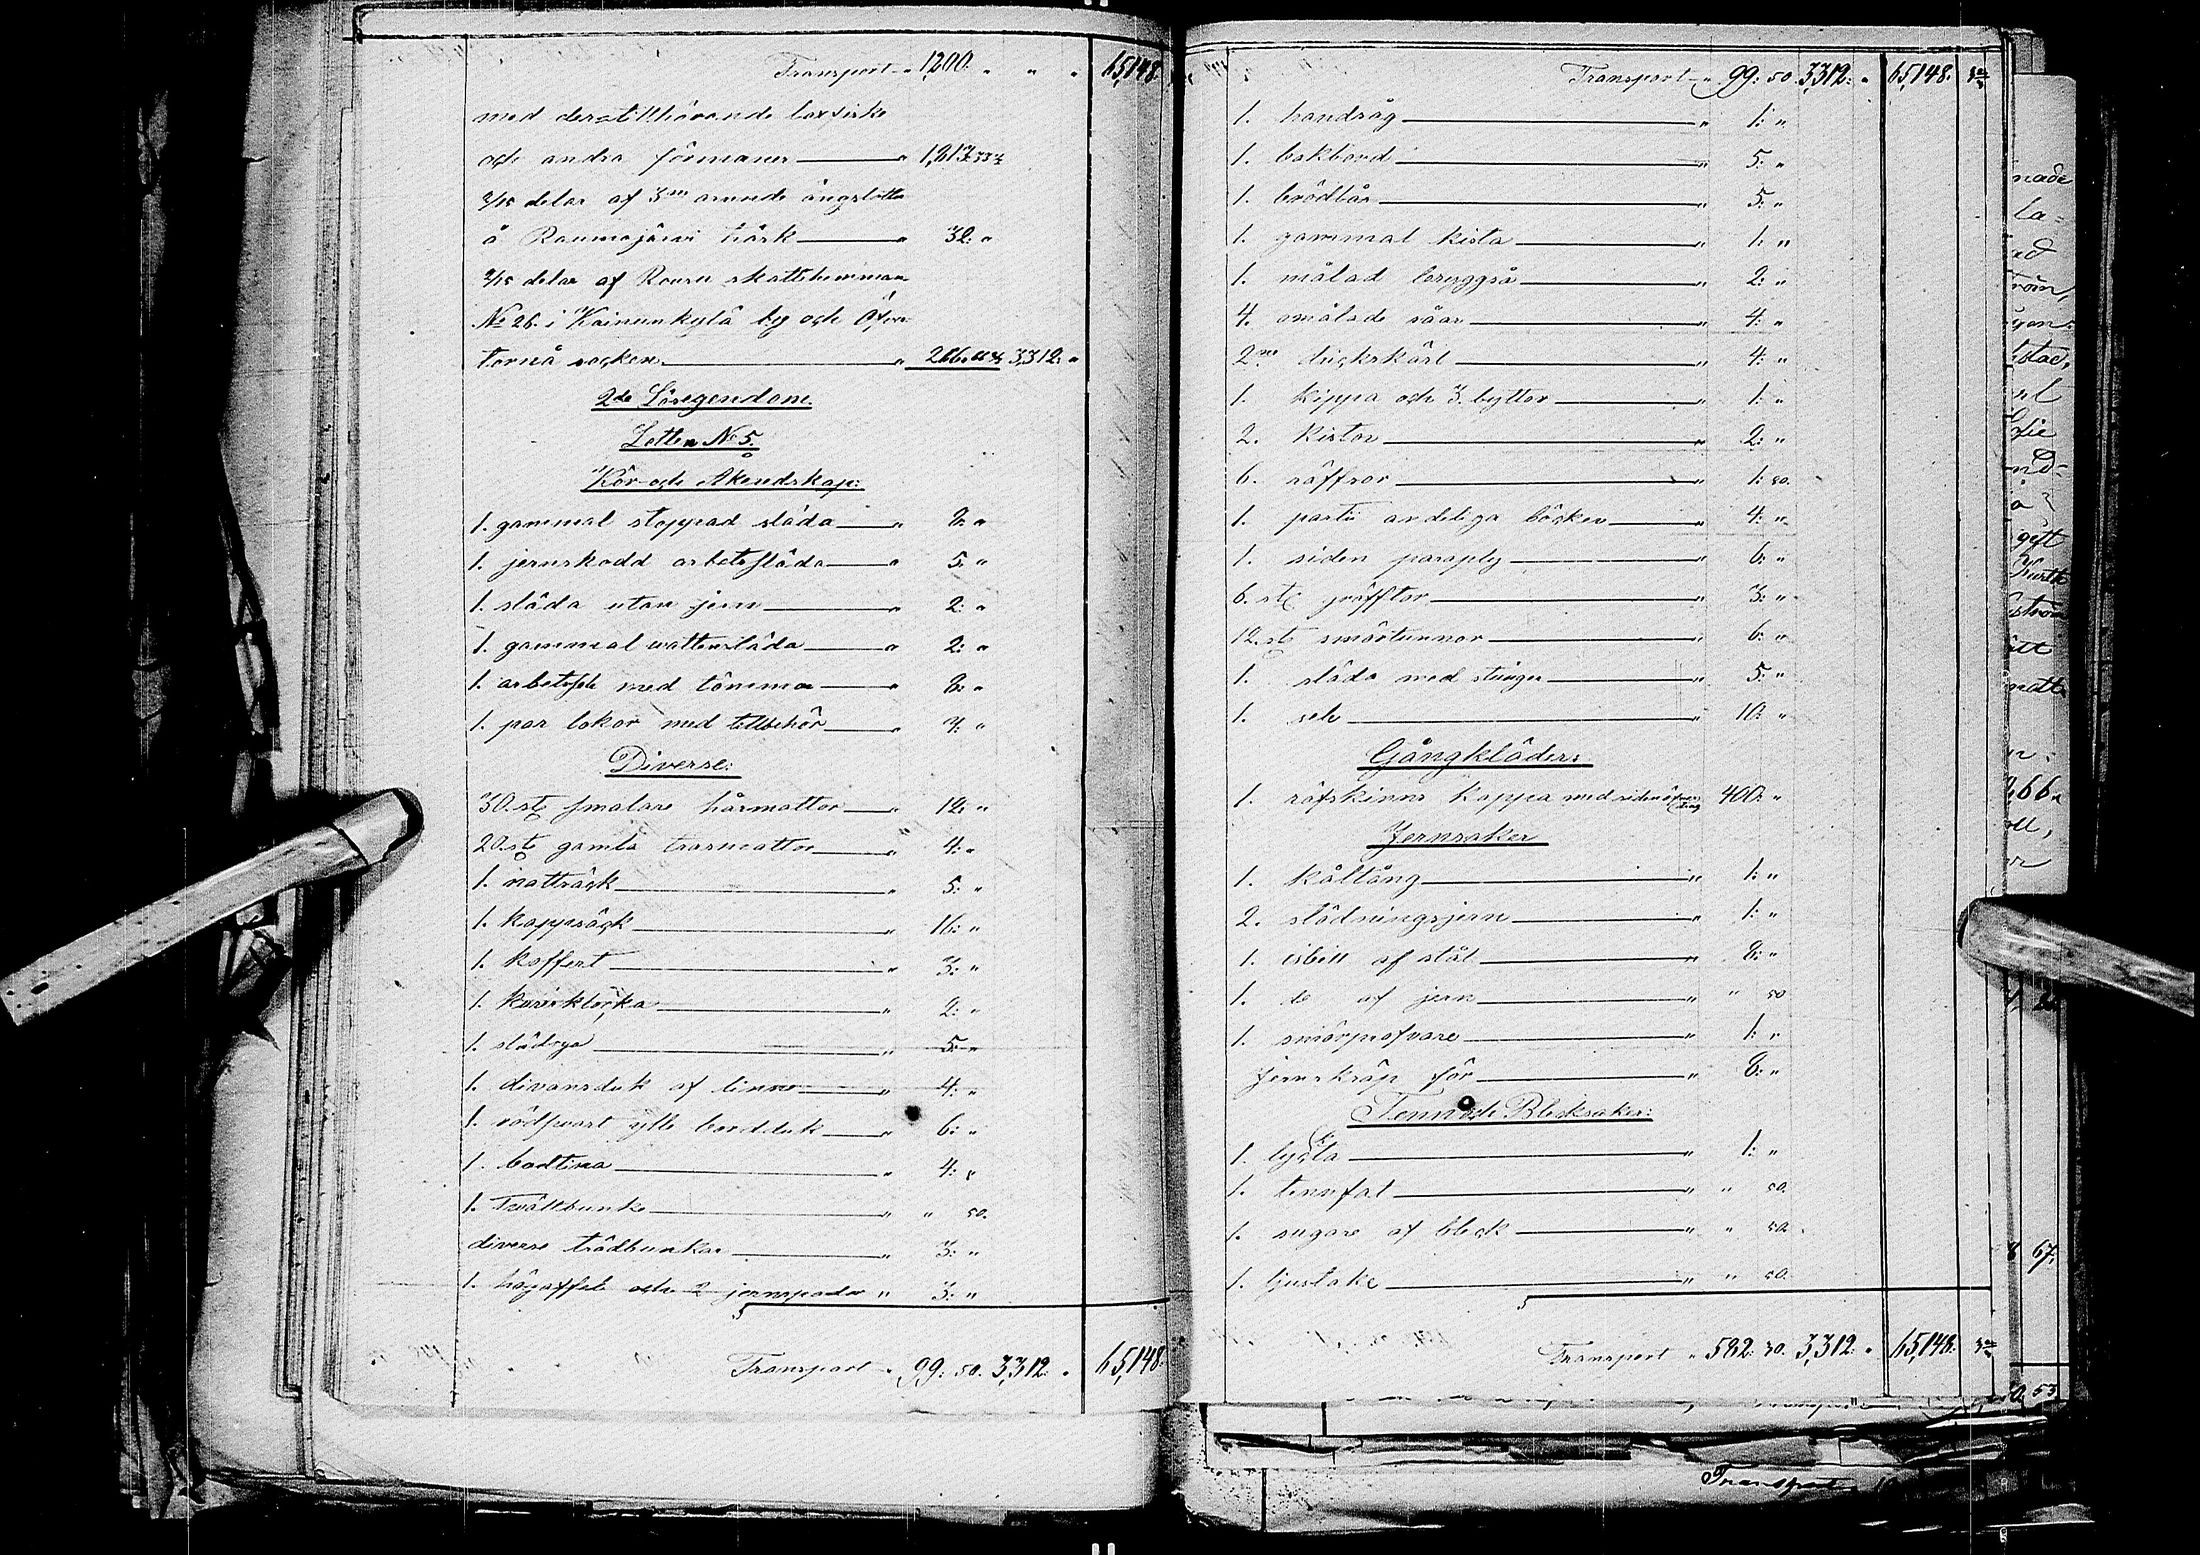 Transport " 1,200. " " " 65,148.
med dertillhörande laxfiske
och andra förmåner " 1,813.33⅓
2/15 delar af 3ne arende ängslotter
å Raumojärvi träsk " 32: "
2/15 delar af Rousu skattehemman
No 26. i Kainunkylä by och Öfver
torneå socken " 266.66⅔ 3,312: "
2do Lösegendom.
Lotten No 5.
Kör- och Åkendskap:
1. gammal stoppad släda " 8: "
1. jernskodd arbetssläda " 5: "
1. släda utan jern " 2: "
1. gammal vattensläda " 2: "
1. arbetssele med tömmar " 8: "
1. par lokor med tillbehör " 4: "
Diverse:
30. st smalare hårmattor " 12: "
20. st gamla trasmattor " 4: "
1. nattsäck " 5: "
1. kappsäck " 16: "
1. koffert " 3: "
1. kurirklocka " 2: "
1. slädrya " 5: "
1. divansduk af linne " 4: "
1. rödsvart ylle bordduk " 6: "
1. badtina " 4: "
1. Tvättbunke " " 50.
diverse trädbunkar " 3: "
1. högaffel och 2 jernspador " 3: "
Transport " 99: 50. 3,312: " 65,148.
Transport " 99: 50. 3,312: " 65,148.
1. handråg " 1: "
1. bakbord " 5: "
1. brödbår " 5: "
1. gammal kista " 1: "
1. målad bryggså " 2: "
4. omålade såar " 4: "
2ne drickskärl " 4: "
1. kippa och 3. byttor " 1: "
2. kistor " 2: "
6. räffsor " 1: 50.
1. parti andeliga böcker " 4: "
1. siden paraply " 6: "
6. st " 3: "
12. st smörtunnor " 6: "
1. släda med stänger " 5: "
1. sele " 10: "
Gångkläder:
1. räfskinns kappa med siden öfverdrag 400: "
Jernsaker
1. kåltång " 1: "
2. städningsjern " 1: "
1. isbill af stål " 8: "
1. do af jern " " 50
1. smörprofvare " 1: "
Jernskräp för " 8: "
Tenn och Blecksaker:
1. lykta " 1: "
1. tennfat " " 50.
1. sugare af bleck " " 50.
1. ljustake " " 50.
Transport " 582: 50. 3,312: " 65,148.
Transport